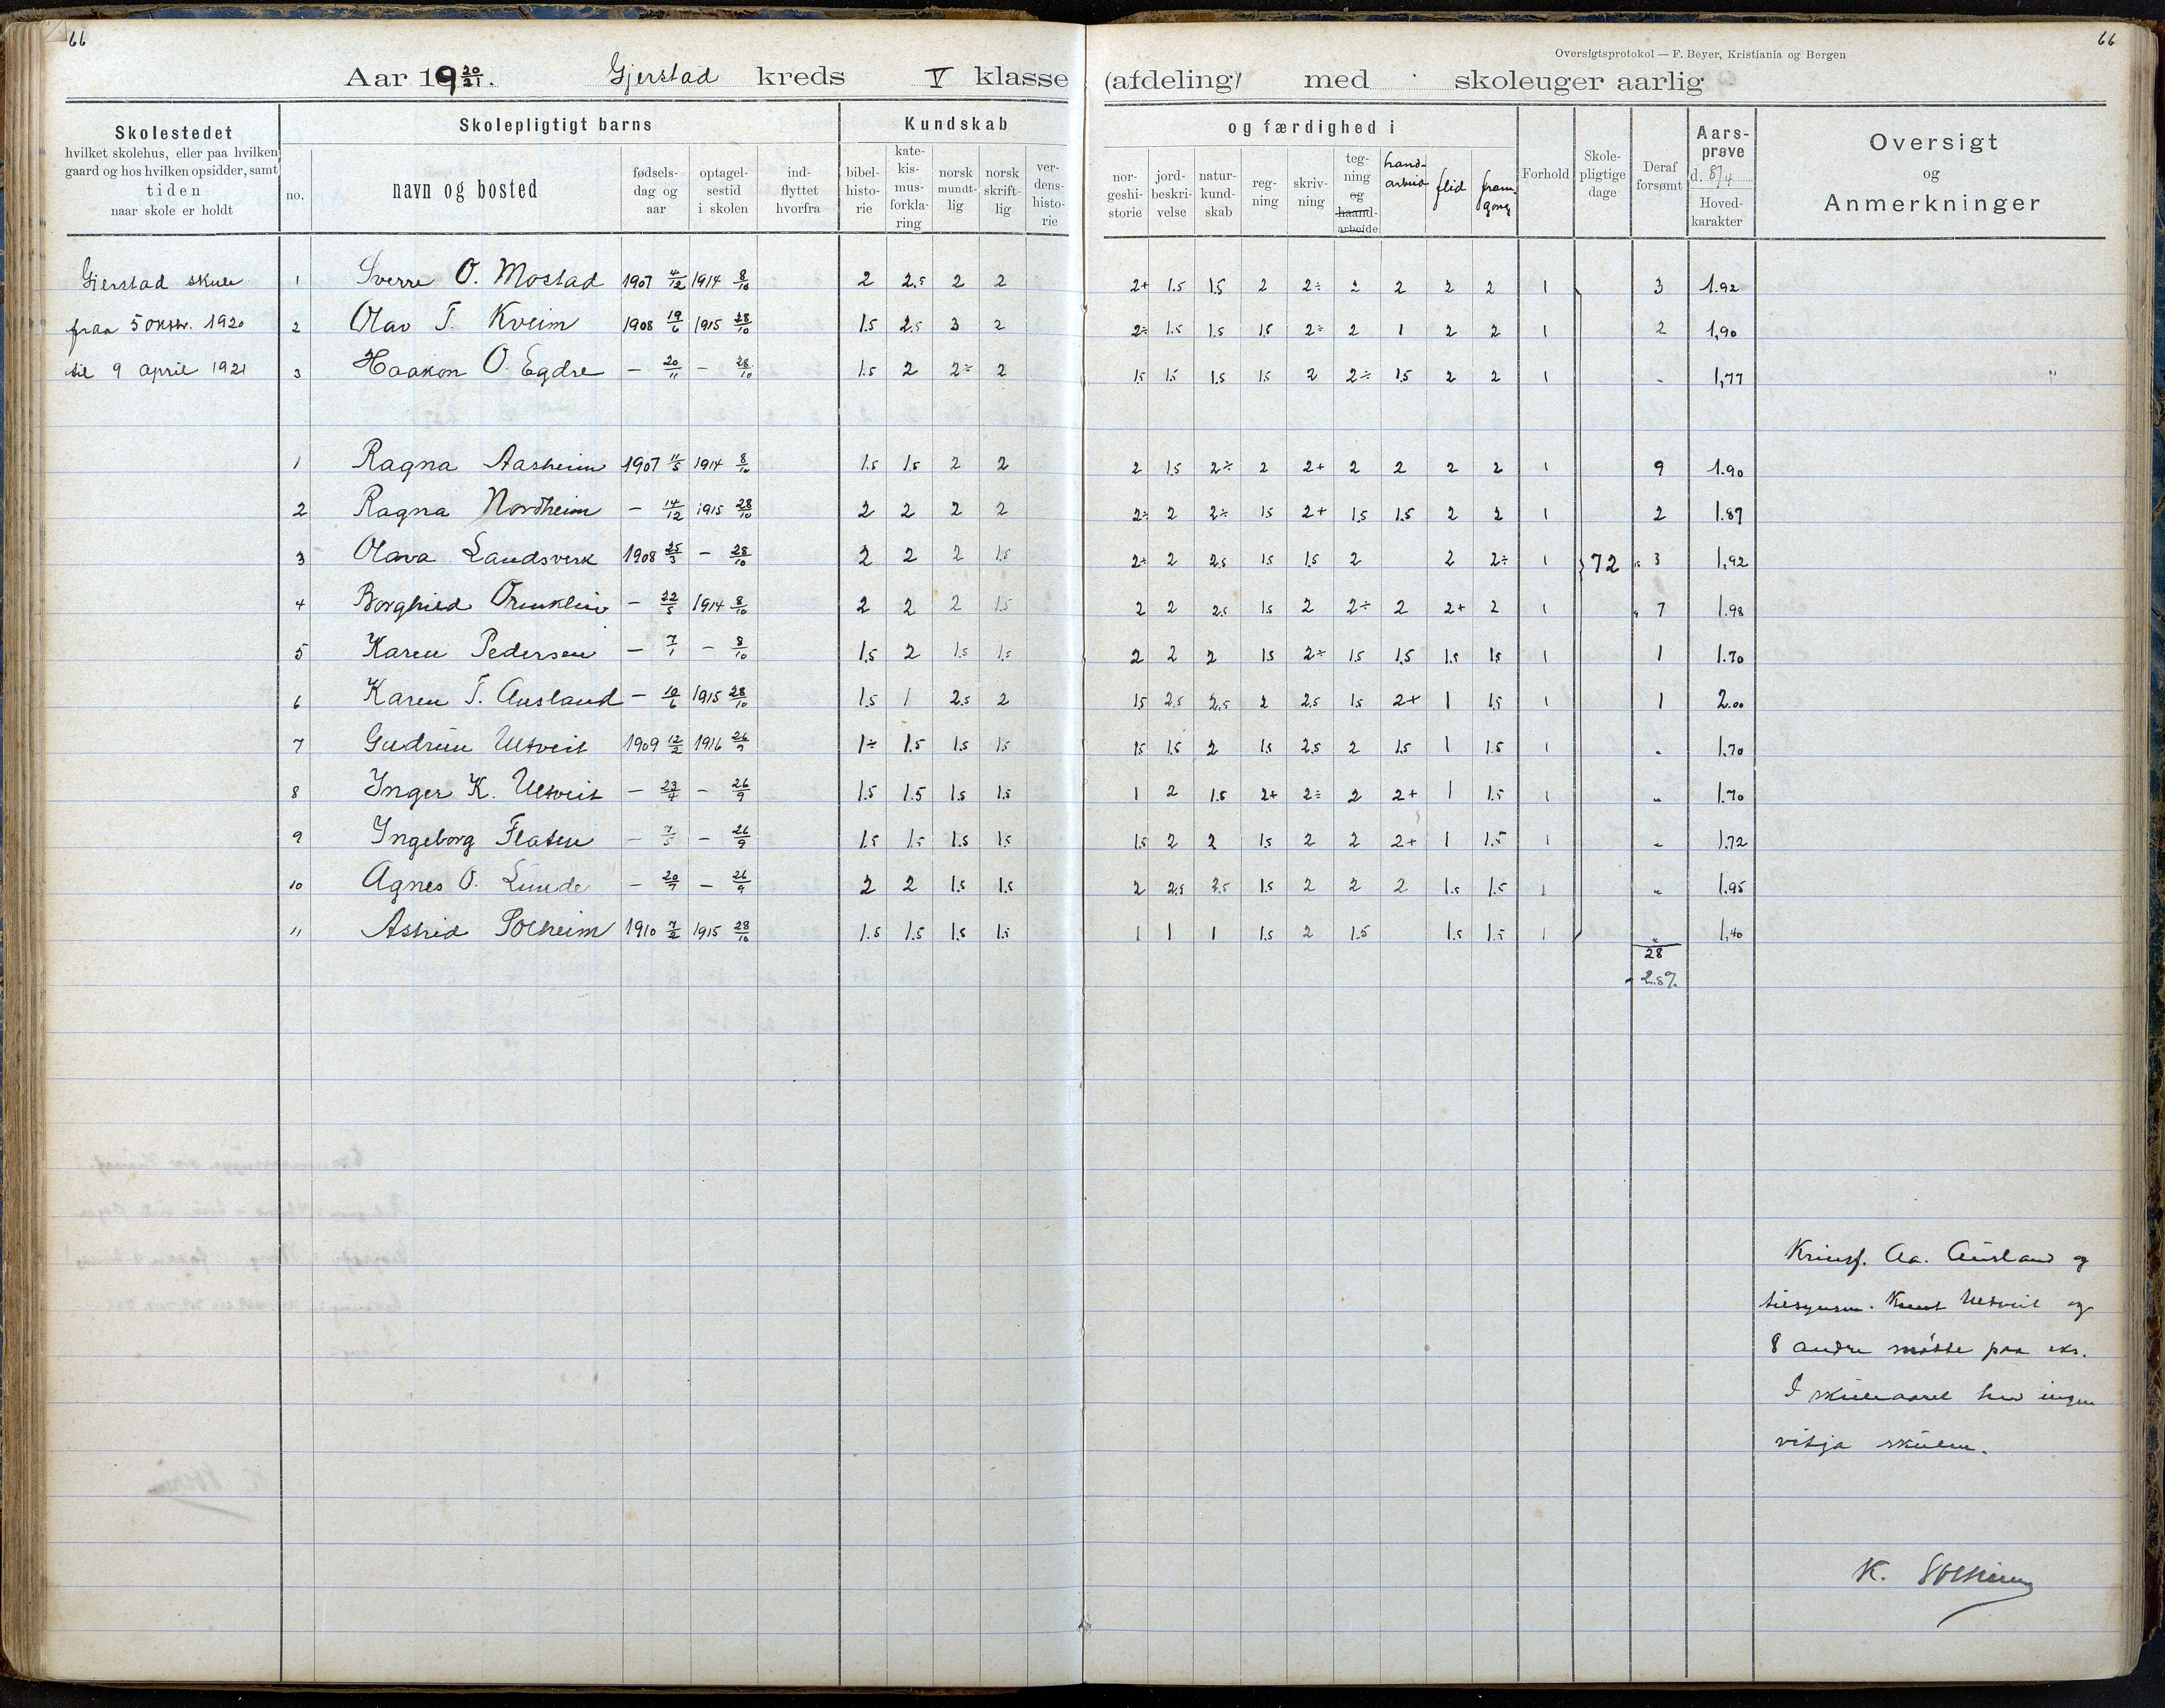 66
66
Oversigtsprotokol — F. Beyer, Kristiania og Bergen
Aar 1920/21. Gjerstad kreds V klasse (afdeling) med skoleuger aarlig
Skolestedet
hvilket skolehus, eller paa hvilken
gaard og hos hvilken opsidder, samt
tiden
naar skole er holdt
Skolepligtigt barns
no.
navn og bosted
fødsels-
dag og
aar
optagel-
sestid
i skolen
ind-
flyttet
hvorfra
Kundskab og færdighed i
bibel-
histo-
rie
kate-
kis-
mus-
forkla-
ring
norsk
mundt-
lig
norsk
skrift-
lig
ver-
dens-
histo-
rie
nor-
geshi-
storie
jord-
beskri-
velse
natur-
kund-
skab
reg-
ning
skriv-
ning
teg-
ning
og
haand-
arbeide
hand-
arbeid
flid
fram-
gong
Forhold
Skole-
pligtige
dage
Deraf
forsømt
Aars-
prøve
d. 8/4
Hoved-
karakter
Oversigt
og
Anmerkninger
Gjerstad skule 1 Sverre O. Mostad 1907 4/12 1914 8/10 2 2.5 2 2 2+ 1.5 1.5 2 2÷ 2 2 2 2 1 3 1.92
fraa 5 oktbr. 1920 2 Olav T. Kveim 1908 19/6 1915 28/10 1.5 2.5 3 2 2÷ 1.5 1.5 1.5 2÷ 2 1 2 2 1 2 1,90
til 9 april 1921 3 Haakon O. Egdre — 20/11 — 28/10 1.5 2 2÷ 2 1.5 1.5 1.5 1.5 2 2÷ 1.5 2 2 1 " 1,77
1 Ragna Aasheim 1907 11/5 1914 8/10 1.5 1.5 2 2 2 1.5 2÷ 2 2+ 2 2 2 2 1 9 1.90
2 Ragna Nordheim — 14/12 1915 28/10 2 2 2 2 2÷ 2 2÷ 1.5 2+ 1.5 1.5 2 2 1 2 1.87
3 Olava Landsverk 1908 25/3 — 28/10 2 2 2 1.5 2÷ 2 2.5 1.5 1.5 2 2 2÷ 1 72 3 1,92
4 Borghild — 22/5 1914 8/10 2 2 2 1.5 2 2 2.5 1.5 2 2÷ 2 2+ 2 1 7 1.98
5 Karen Pedersen — 7/1 — 8/10 1.5 2 1.5 1.5 2 2 2 1.5 2÷ 1.5 1.5 1.5 1.5 1 1 1.70
6 Karen T. Ausland — 10/6 1915 28/10 1.5 1 2.5 2 1.5 2.5 2.5 2 2.5 1.5 2+ 1 1.5 1 1 2.00
7 Gudrun Ulltveit 1909 12/2 1916 26/9 1÷ 1.5 1.5 1.5 1.5 1.5 2 1.5 2.5 2 1.5 1 1.5 1 " 1.70
8 Inger K. Ulltveit — 23/4 — 26/9 1.5 1.5 1.5 1.5 1 2 1.5 2+ 2÷ 2 2+ 1 1.5 1 " 1.70
9 Ingeborg Flaten — 7/5 — 26/9 1.5 1.5 1.5 1.5 1.5 2 2 1.5 2 2 2+ 1 1.5 1 " 1.72
10 Agnes O. Lunde — 20/7 — 26/9 2 2 1.5 1.5 2 2.5 2.5 1.5 2 2 2 1.5 1.5 1 " 1.95
11 Astrid Solheim 1910 7/2 1915 28/10 1.5 1.5 1.5 1.5 1 1 1 1.5 2 1.5 1.5 1.5 1 " 1,40
28
Aa. Ausland og
tilsynsm. Knut Ulltveit og
8 andre møtte paa eks.
I skuleaaret har ingen
vitja skulen.
K. Solheim